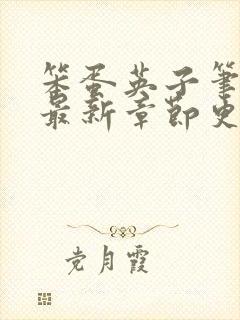 笨蛋英子笔
最新章节史
党月霞